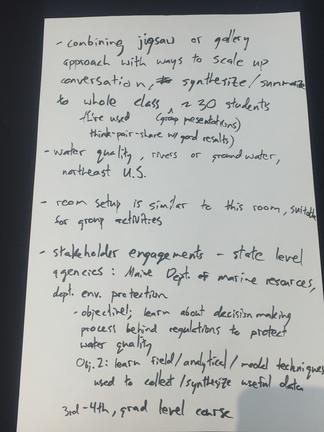 - combining jigsaw or gallery
approach with ways to scale up
conversation, synthesize/summarize
to whole class ~ 30 students
(I've used (group presentations)
think-pair-share w/ good results)
- water quality, rivers or ground water,
northeast U.S.
- room setup is similar to this room, suitable
for group activities
- stakeholder engagements - state level
agencies: Maine Dept. of marine resources,
dept. env. protection
- objective: learn about decision making
process behind regulations to protect
water quality
Obj. 2: learn field/analytical/model techniques
used to collect/synthesize useful data
3rd-4th, grad level course